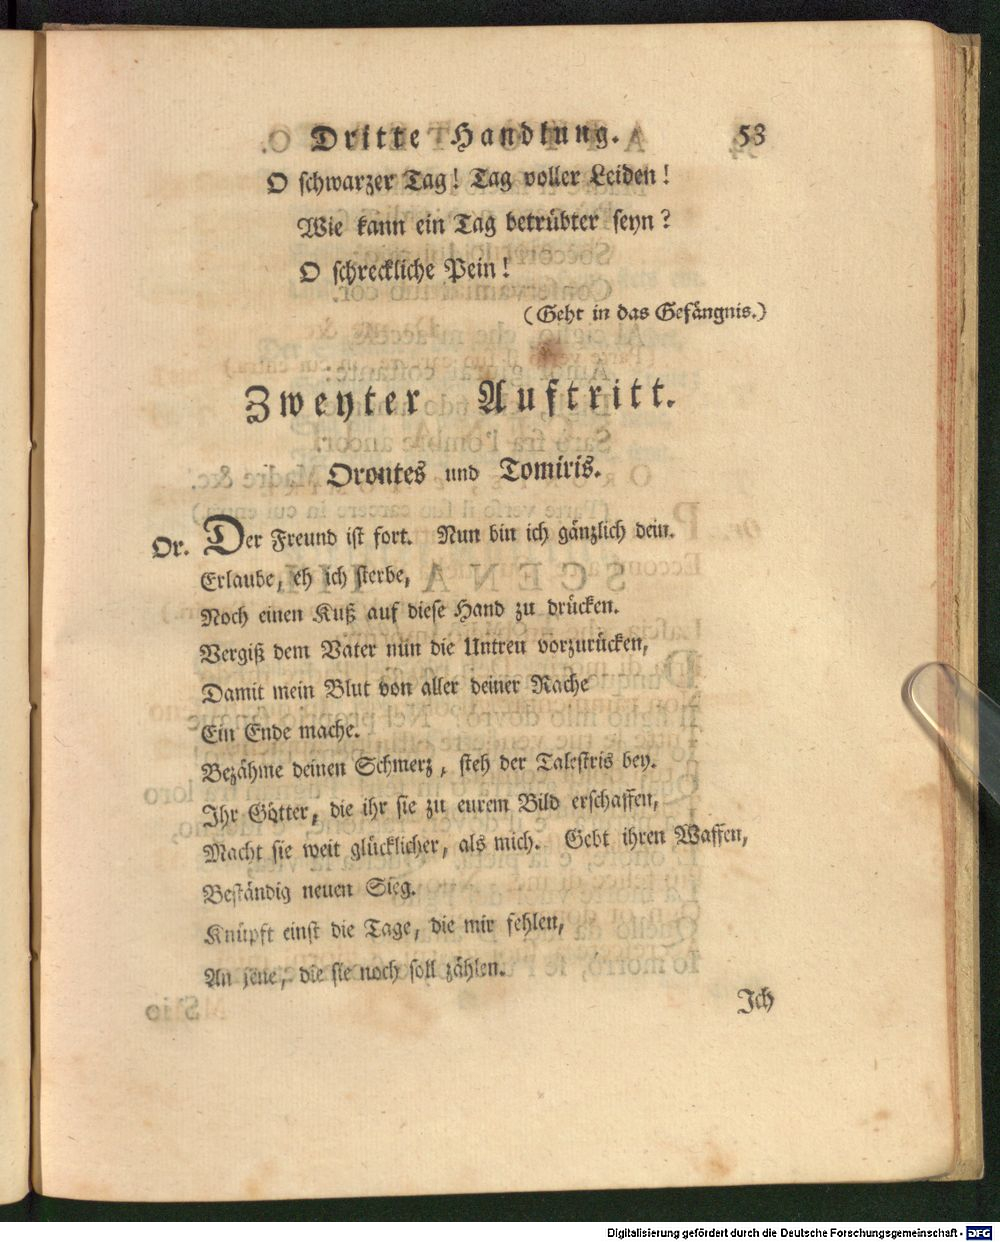 Dritte Handlung. 53
O schwarzer Tag! Tag voller Leiden!
Wie kann ein Tag betrübter seyn?
O schreckliche Pein!
(Geht in das Gefängnis.)
Zweyter Auftritt.
Orontes und Tomiris.
Or. Der Freund ist fort. Nun bin ich gänzlich dein.
Erlaube, eh ich sterbe,
Noch einen Kuß auf diese Hand zu drücken.
Vergiß dem Vater nun die Untreu vorzurücken,
Damit mein Blut von aller deiner Rache
Ein Ende mache.
Bezähme deinen Schmerz, steh der Talestris bey.
Ihr Götter, die ihr sie zu eurem Bild erschaffen,
Macht sie weit glücklicher, als mich. Gebt ihren Waffen,
Beständig neuen Sieg.
Knüpft einst die Tage, die mir fehlen,
An jene, die sie noch soll zählen.
Ich
Digitalisierung gefördert durch die Deutsche Forschungsgemeinschaft - DFG